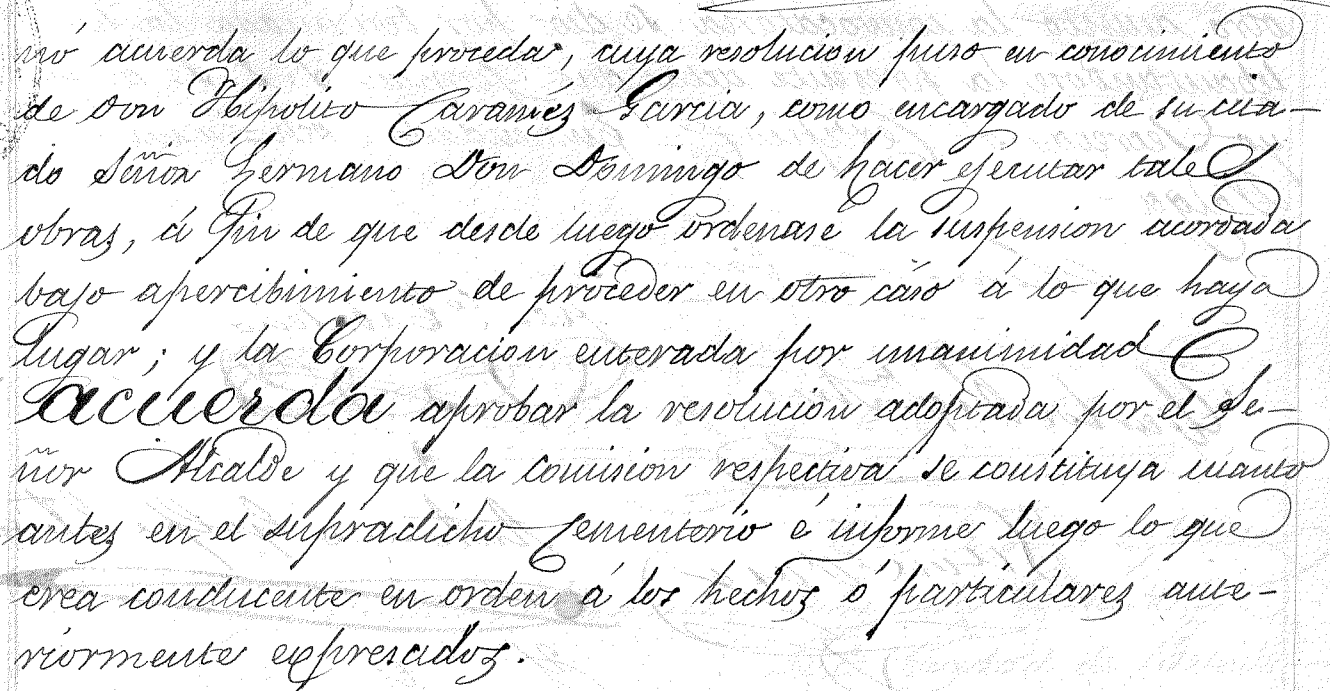 nó acuerda lo que proceda, cuya resolucion puso en conocimiento
de Don Hipolito Caramés Garcia, como encargado de su cita-
do Señor hermano Don Domingo de hacer ejecutar tales
obras, á fin de que desde luego ordenase la suspension acordada
bajo apercibimiento de proceder en otro cáso á lo que haya
lugar; y la Corporacion enterada por unanimidad
acuerda aprobar la resolucion adoptada por el Se-
ñor Alcalde y que la Comision respectiva se constituya cuanto
antes en el supradicho Cementerio é informe luego lo que
crea conducente en orden á los hechos ó particulares ante-
riormente expresados.